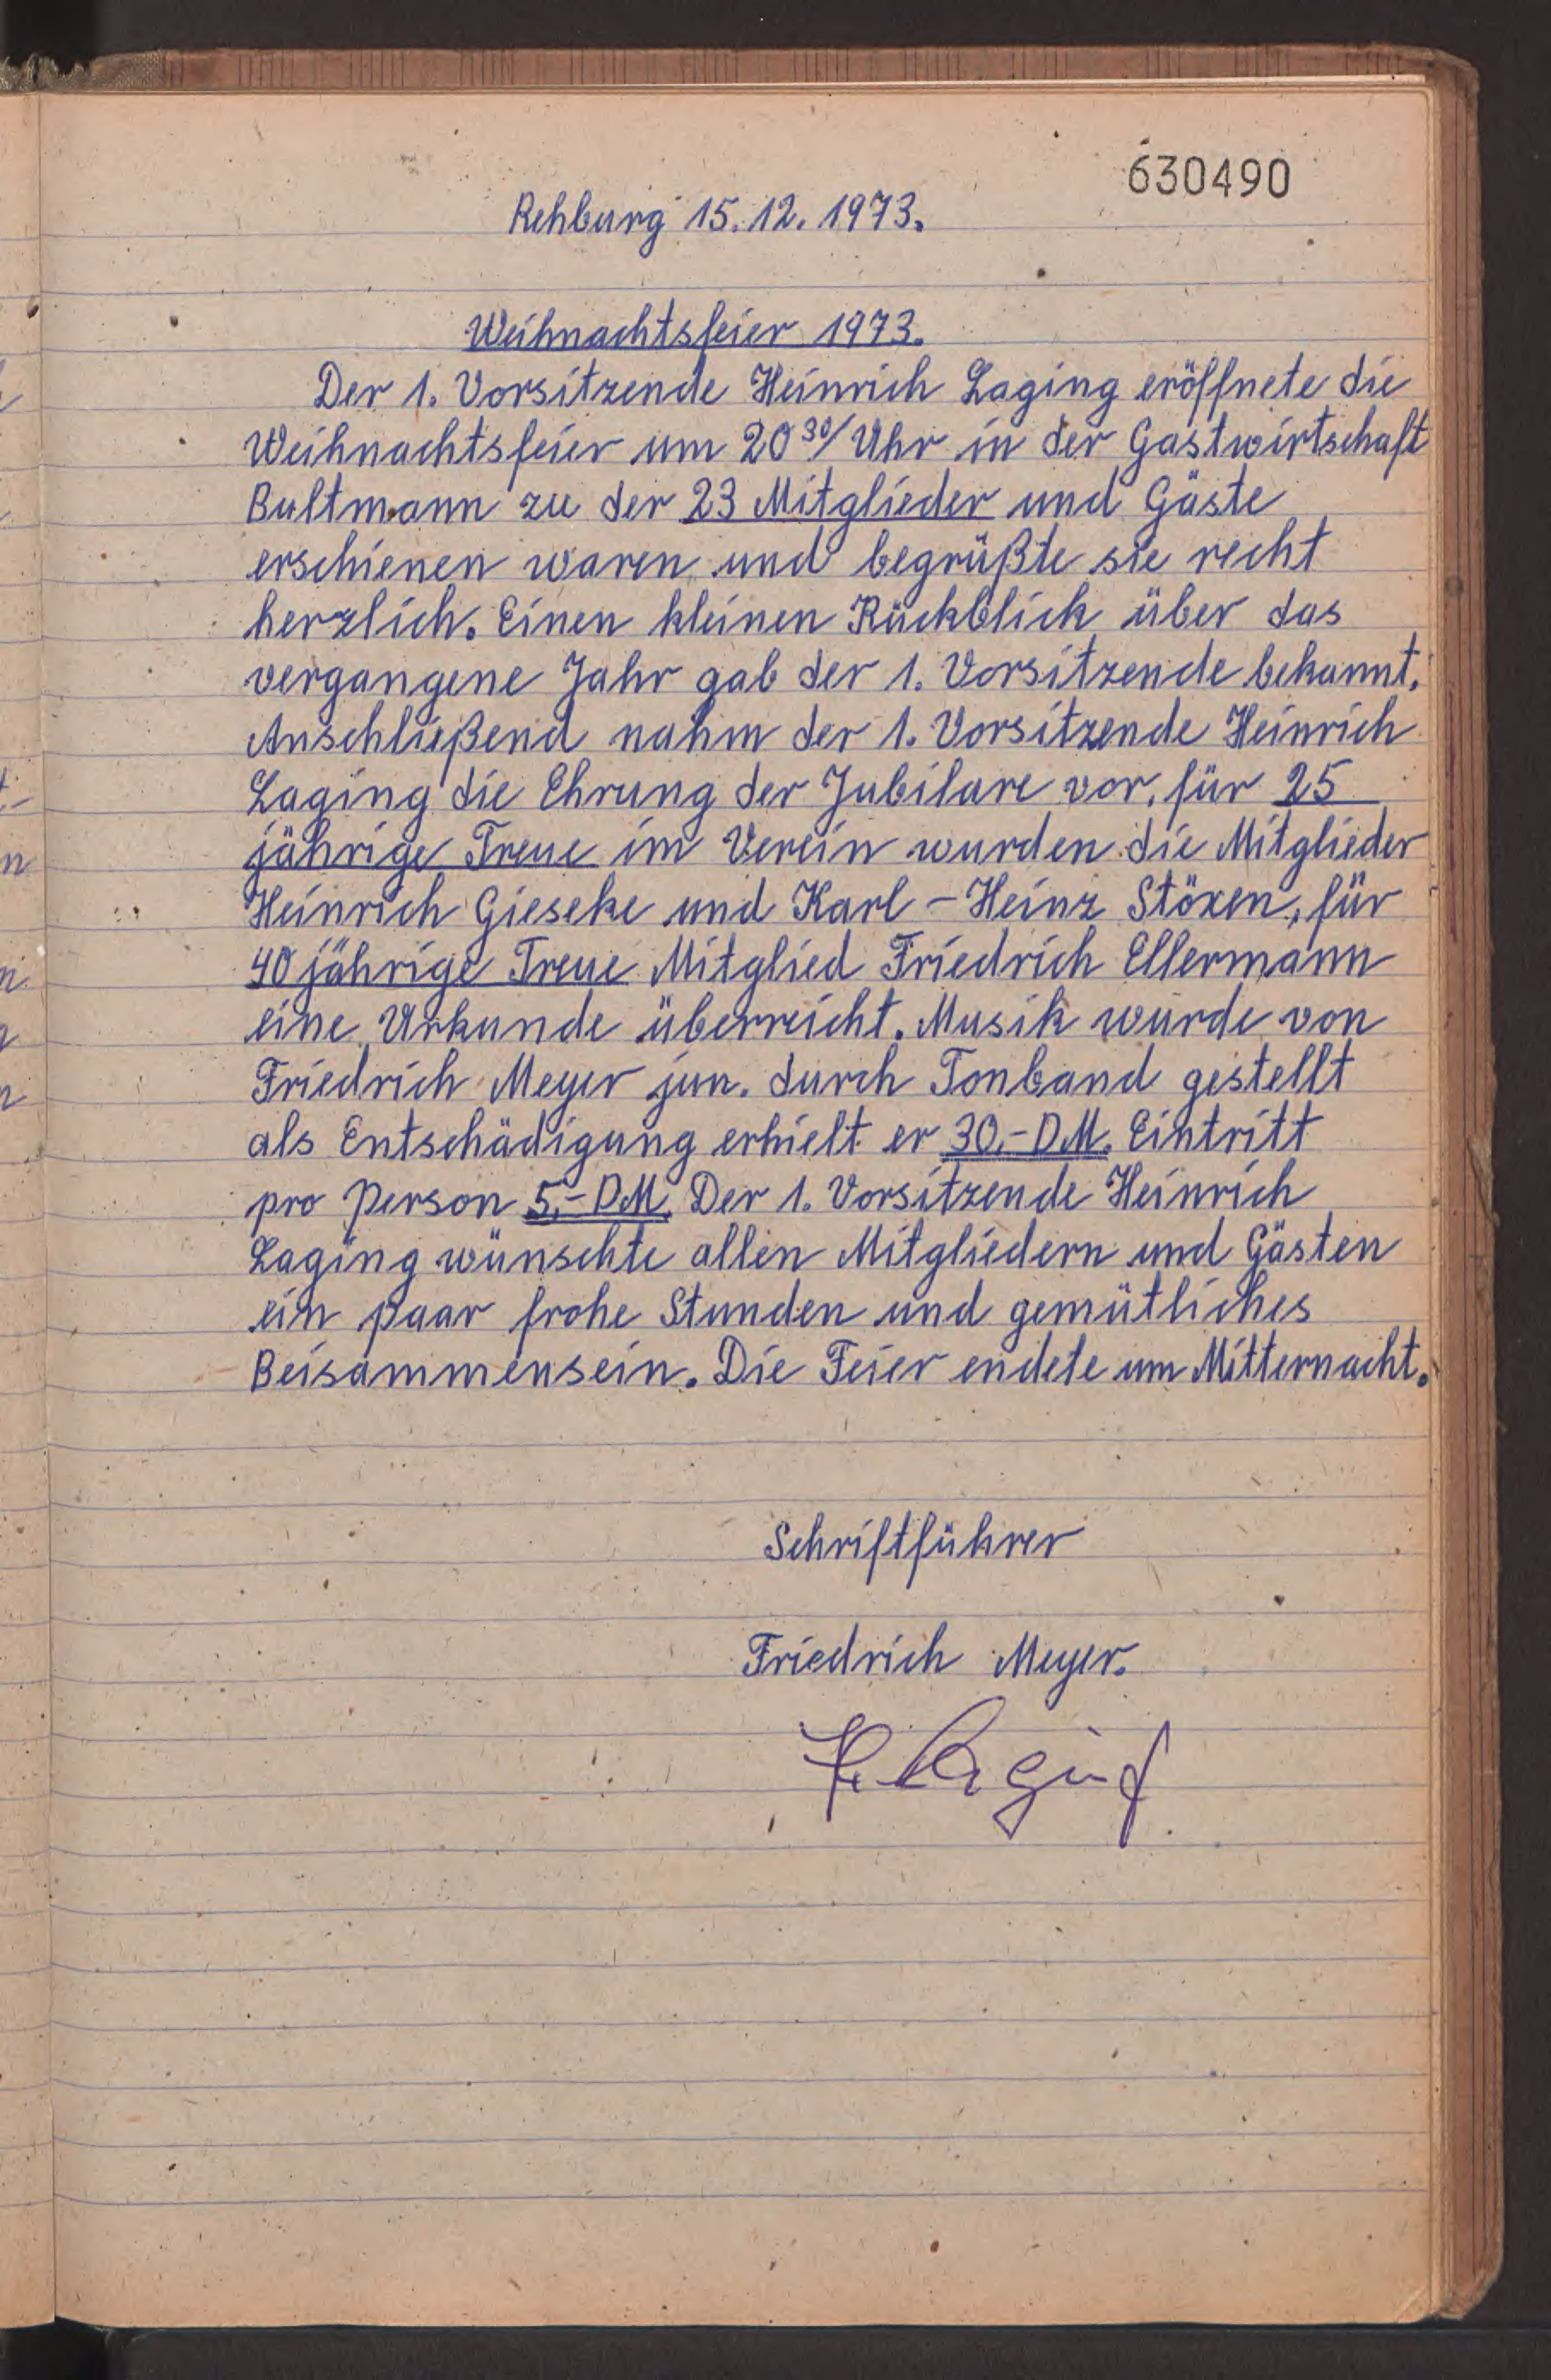 630490
Rehburg 15.12.1973.
Weihnachtsfeier 1973.
Der 1. Vorsitzende Heinrich Laging eröffnete die
Weihnachtsfeier um 20³⁰/ Uhr in der Gastwirtschaft
Bultmann zu der 23 Mitglieder und Gäste
erschienen waren und begrüßte sie recht
herzlich. Einen kleinen Rückblick über das
vergangene Jahr gab der 1. Vorsitzende bekannt.
Anschließend nahm der 1. Vorsitzende Heinrich
Laging die Ehrung der Jubilare vor, für 25
jährige Treue im Verein wurden die Mitglieder
Heinrich Gieseke und Karl - Heinz Stöxen, für
40 jährige Treue Mitglied Friedrich Ellermann
eine Urkunde überreicht. Musik wurde von
Friedrich Meyer jun. durch Tonband gestellt
als Entschädigung erhielt er 30,- DM. Eintritt
pro Person 5,- DM. Der 1. Vorsitzende Heinrich
Laging wünschte allen Mitgliedern und Gästen
ein paar frohe Stunden und gemütliches
Beisammensein. Die Feier endete um Mitternacht.
Schriftführer
Friedrich Meyer.
H. Laging